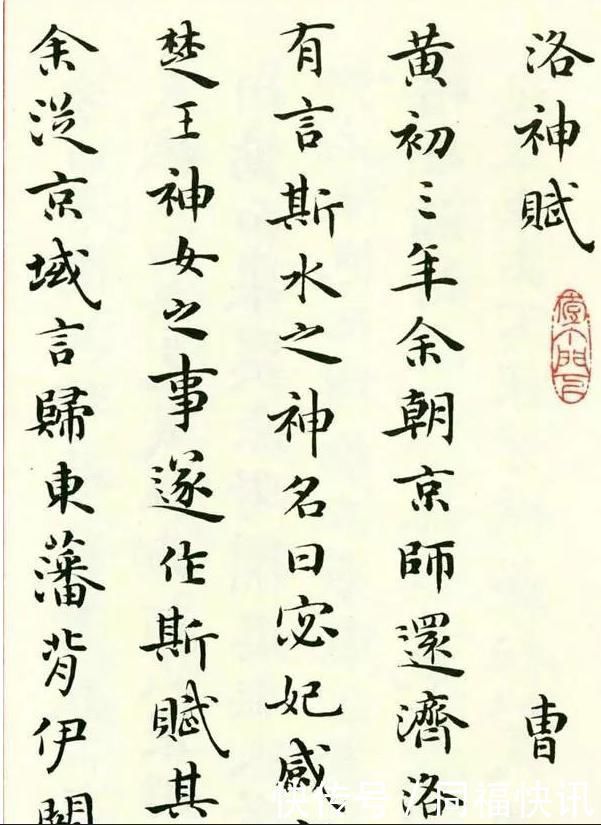 洛神賦 曹
黄初三年余朝京師還濟洛
有言斯水之神名曰宓妃感
楚王神女之事遂作斯賦其
余從京域言歸東藩背伊
快传号/同福快讯